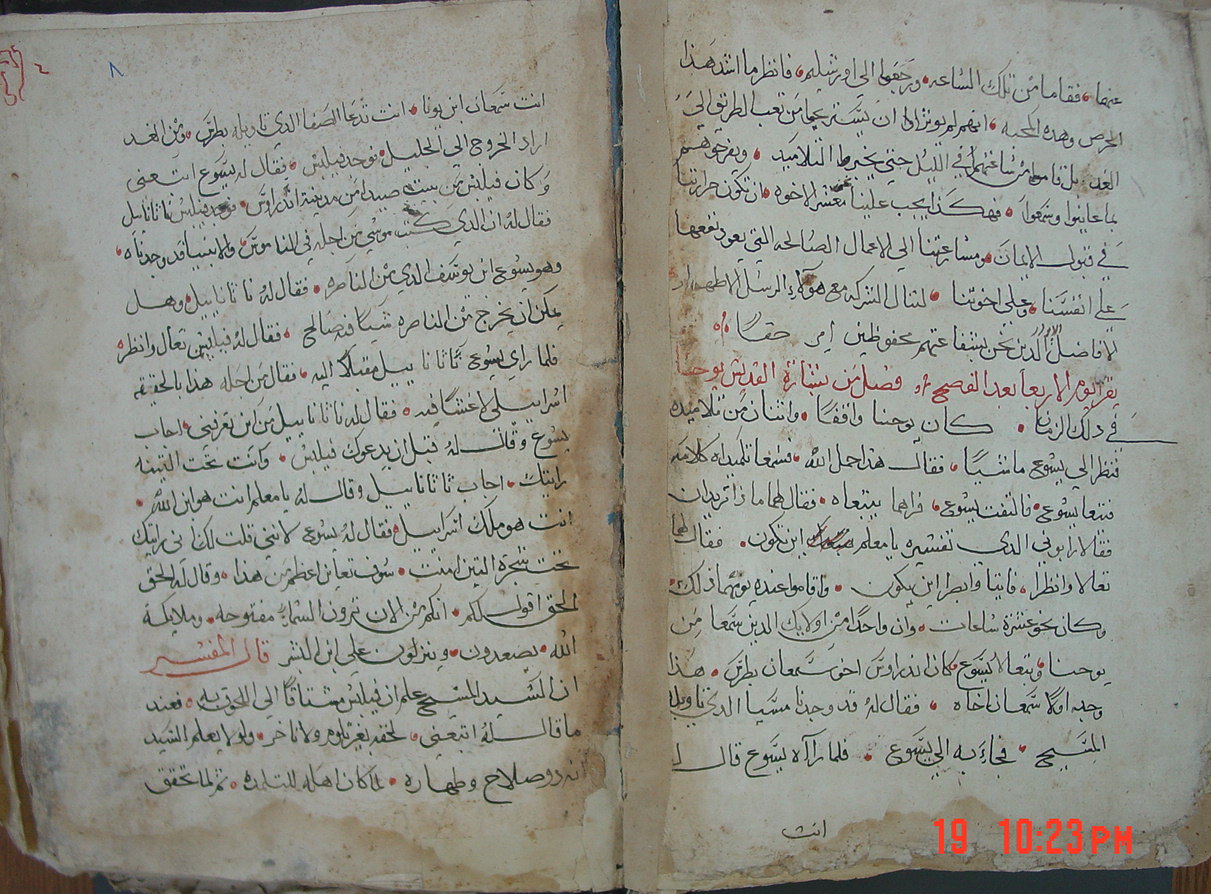 عنها • فقاما من تلك الساعه • ورجعوا الي اورشليم • فانظر ما اشد هذا
الحرص وهذه المحبه • انهم لم يوثروا ان يستريحا من تعب الطريق الي
الغد • بل قاموا من ساعتهم في الليل حتي يخبروا التلاميذ • ويفرحوهم
بما عاينوا وسمعوا • فهكذا يجب علينا معشر الاخوه • ان تكون حرارتنا
في قبول الايمان • ومسارعتنا الي الاعمال الصالحه التي يعود نفعها
علي انفسنا • وعلي اخوتنا • لننال الشركه مع هولاء الرسل الاطهار
الافاضل الابرار الذين نحن بشفاعتهم محفوظين امين حقا
يقرا يوم الاربعا بعد الفصح فصل من بشارة القديس يوحنا
في ذلك الزمان • كان يوحنا واقفا • واثنان من تلاميذه
فنظر الي يسوع ماشيا • فقال هذا حمل الله • فسمعا تلميذاه كلامه
فتبعا يسوع • فالتفت يسوع • فراهما يتبعاه • فقال لهما ماذا تريدان
فقالا رابوني الذي تفسيره يا معلم اين تكون • فقال لهما
تعالا وانظرا • فاتيا وابصرا اين يكون • واقاموا عنده يومهما ذلك
وكان نحو عشرة ساعات • وان واحدا من اولايك الذين سمعا من
يوحنا • وتبعا لايسوع • كان اندراوس اخو سمعان بطرس • هذا
وجد اولا سمعان اخاه • فقال له قد وجدنا مسيا الذي تاويله
المسيح • فجاء به الي يسوع • فلما راه يسوع قال له
انت
٨
انت سمعان ابن يونا • انت تدعا الصفا الذي تاويله بطرس • ومن الغد
اراد الخروج الي الجليل • فوجد فيلبس • فقال له يسوع اتبعني
وكان فيلبس من بيت صيدا من مدينة اندراوس • فوجد فيلبس ناثانايل
فقال له ان الذي كتب موسي من اجله في الناموس • والانبيا قد وجدناه •
وهو يسوع ابن يوسف الذي من الناصره • فقال له ناثاناييل • وهل
يمكن ان يخرج من الناصره شيا فيه صالح • فقال له فيلبس تعال وانظر •
فلما راي يسوع ناثاناييل مقبلا اليه • فقال من اجله هذا بالحقيقه
اسراييلي لا غش فيه • فقال له ناثاناييل من اين تعرفني • اجاب
يسوع وقال له قبل ان يدعوك فيلبس • وانت تحت التينه
رايتك • اجاب ناثاناييل وقال له يا معلم انت هو ابن الله •
انت هو ملك اسراييل • فقال له يسوع لانني قلت لك اني رايتك
تحت شجرة التين امنت • سوف تعاين اعظم من هذا • وقال له الحق
الحق اقول لكم • انكم من الان ترون السماء مفتوحه • وملايكة
الله • يصعدون • وينزلون علي ابن البشر قال المفسر
ان السيد المسيح علم ان فيلبس مشتاقا الي اللحوق به • فعند
ما قال له اتبعني • لحقه بغير تلوم ولا تاخر • ولولا يعلم السيد
انه ذو صلاح وطهاره • لما كان اهله للتلمده • ثم لما تحقق
19 10:23 PM